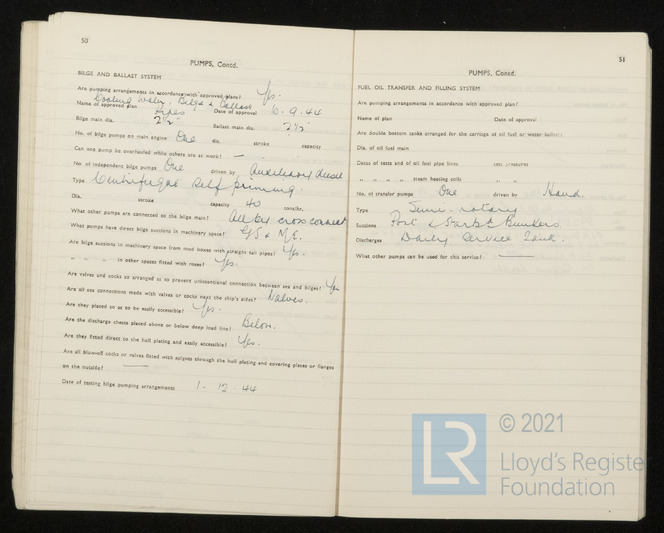 50
PUMPS, Contd.
BILGE AND BALLAST SYSTEM
Are pumping arrangements in accordance with approved plans? Yes.
Cooling Water, Bilge & Ballast
Name of approved plan Pipes Date of approval 6.9.44
Bilge main dia. 2½" Ballast main dia. 2½"
No. of bilge pumps on main engine One dia. stroke capacity
Can one pump be overhauled while others are at work? —
No. of independent bilge pumps One driven by Auxiliary diesel
Type Centrifugal Self priming.
Dia. stroke capacity 40 tons/hr.
What other pumps are connected to the bilge main? All by cross connect
What pumps have direct bilge suctions in machinery space? G/S & M/E.
Are bilge suctions in machinery space from mud boxes with straight tail pipes? Yes.
" " " in other spaces fitted with roses? Yes.
Are valves and cocks so arranged as to prevent unintentional connection between sea and bilges? Yes
Are all sea connections made with valves or cocks next the ship's sides? Valves.
Are they placed so as to be easily accessible? Yes.
Are the discharge chests placed above or below deep load line? Below.
Are they fitted direct to the hull plating and easily accessible? Yes.
Are all blow-off cocks or valves fitted with spigots through the hull plating and covering plates or flanges
on the outside? —
Date of testing bilge pumping arrangements 1-12-44
51
PUMPS, Contd.
FUEL OIL TRANSFER AND FILLING SYSTEM
Are pumping arrangements in accordance with approved plan?
Name of plan Date of approval
Are double bottom tanks arranged for the carriage of oil fuel or water ballast?
Dia. of oil fuel main
Dates of tests and of oil fuel pipe lines test pressures
" " " " steam heating coils " "
No. of transfer pumps One driven by Hand.
Type Semi-rotary
Suctions Port & Starbd Bunkers.
Discharges Daily Service Tank.
What other pumps can be used for this service? —
© 2021
LR
Lloyd's Register
Foundation